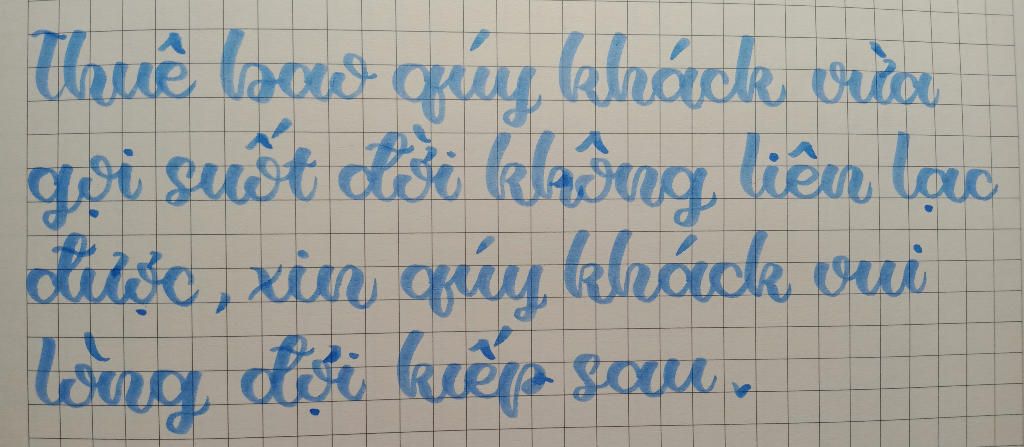 Thuê bao qúy khách vừa
gọi suốt đời không liên lạc
được, xin qúy khách vui
lòng đợi kiếp sau.